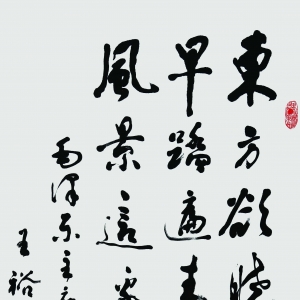 東方欲曉
早踏遍青
風景這邊
毛澤东主席
王裕